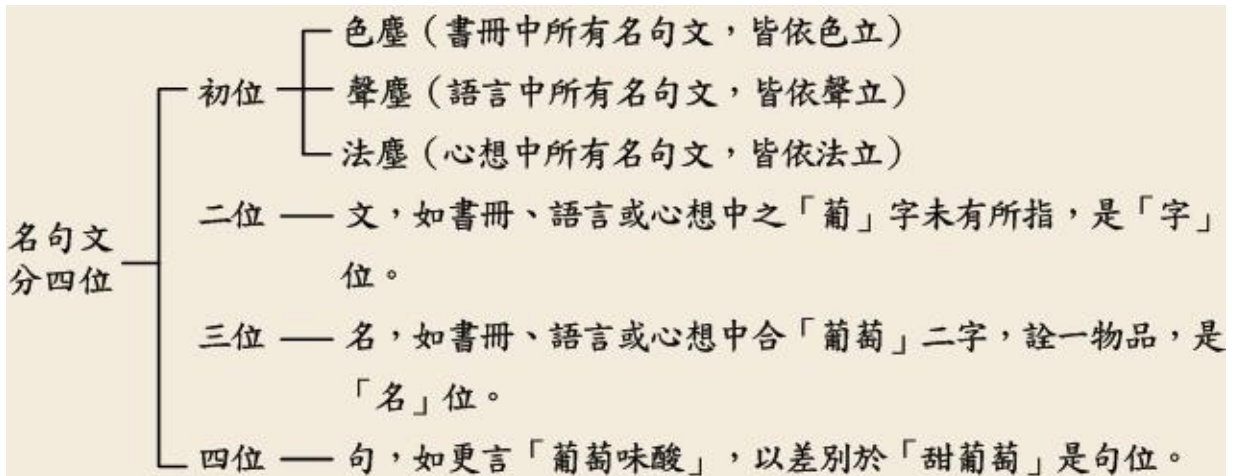 色塵（書冊中所有名句文，皆依色立）
初位
聲塵（語言中所有名句文，皆依聲立）
法塵（心想中所有名句文，皆依法立）
名句文
分四位
二位
文，如書冊、語言或心想中之「葡」字未有所指，是「字」
位。
三位
名，如書冊、語言或心想中合「葡萄」二字，詮一物品，是
「名」位。
四位
句，如更言「葡萄味酸」，以差別於「甜葡萄」是句位。